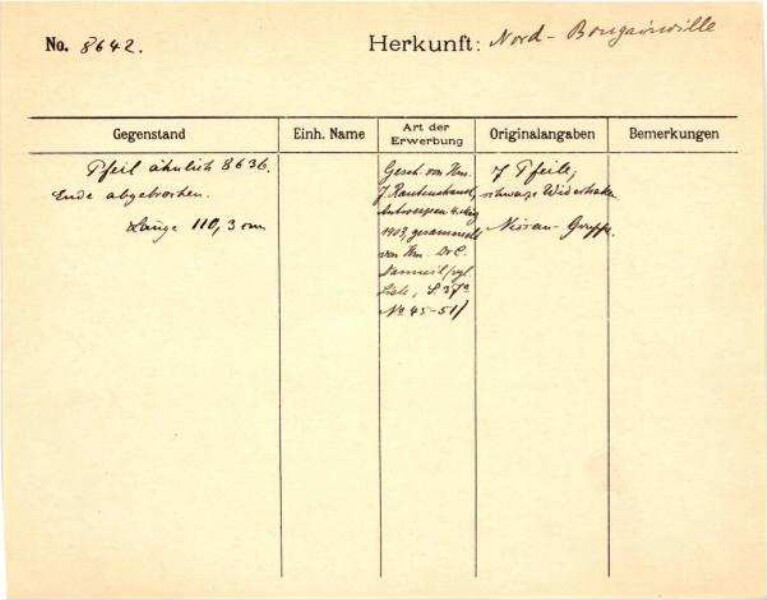 No. 8642.
Herkunft: Nord-Bougainville
Gegenstand
Einh. Name
Art der Erwerbung
Originalangaben
Bemerkungen
Pfeil ähnlich 8636.
Ende abgebrochen.
Länge 110,3 cm
Gesch. von Hrn.
J. Rautenstrauch,
Antwerpen
1903, gesammelt
von Hrn. Dr.
vgl.
Liste, S. 37a
No 45-51/
7 Pfeile,
schwarze Widerhaken
Nissan-Gruppe.